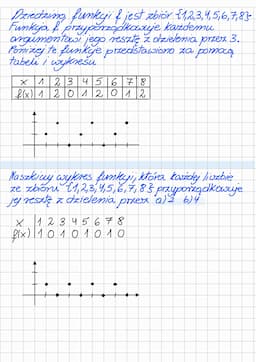 Dziedziną funkcji f jest zbiór {1,2,3,4,5,6,7,8}
Funkcja f przyporządkowuje każdemu
argumentowi jego resztę z dzielenia przez 3.
Poniżej tę funkcję przedstawiono za pomocą
tabeli i wykresu
x 1 2 3 4 5 6 7 8
f(x) 1 2 0 1 2 0 1 2
Naszkicuj wykres funkcji, która każdej liczbie
ze zbioru {1,2,3,4,5,6,7,8} przyporządkowuje
jej resztę z dzielenia przez a) 2 b) 4
x 1 2 3 4 5 6 7 8
f(x) 1 0 1 0 1 0 1 0